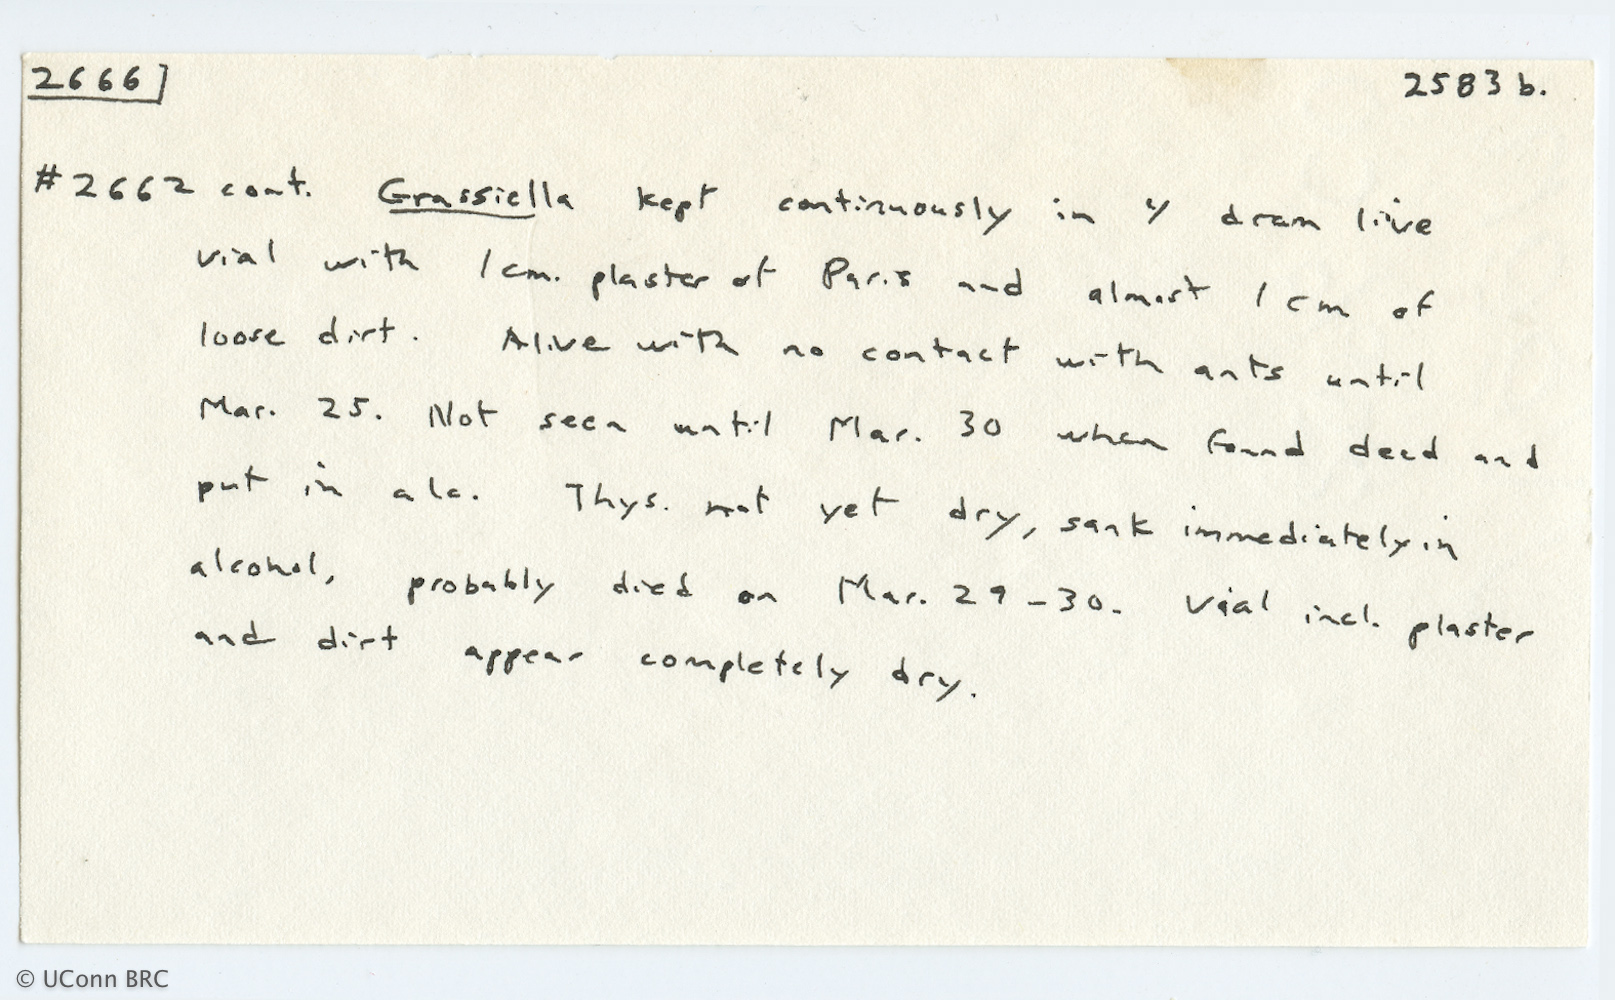 2666] 2583 b.
#2662 cont. Grassiella kept continuously in 4 dram live
vial with 1 cm. plaster of Paris and almost 1 cm of
loose dirt. Alive with no contact with ants until
Mar. 25. Not seen until Mar. 30 when found dead and
put in alc. Thys. not yet dry, sank immediately in
alcohol, probably died on Mar. 29-30. Vial incl. plaster
and dirt appear completely dry.
© UConn BRC